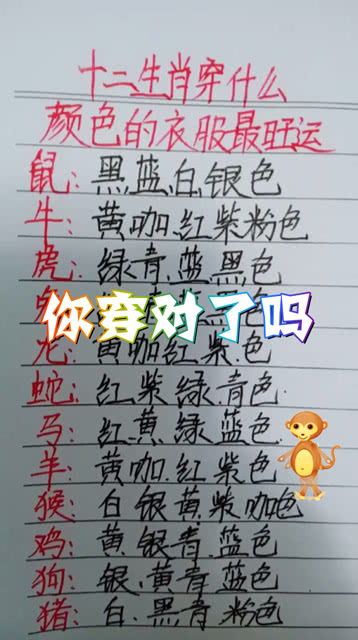 十二生肖穿什么
颜色的衣服最旺运
鼠:黑蓝白银色
牛:黄咖红紫粉色
虎:绿青蓝黑色
你穿对了吗
龙:黄咖红紫色
蛇:红紫绿青色
马:红黄绿蓝色
羊:黄咖红紫色
猴:白银黄紫咖色
鸡:黄银青蓝色
狗:银黄青蓝色
猪:白黑青粉色